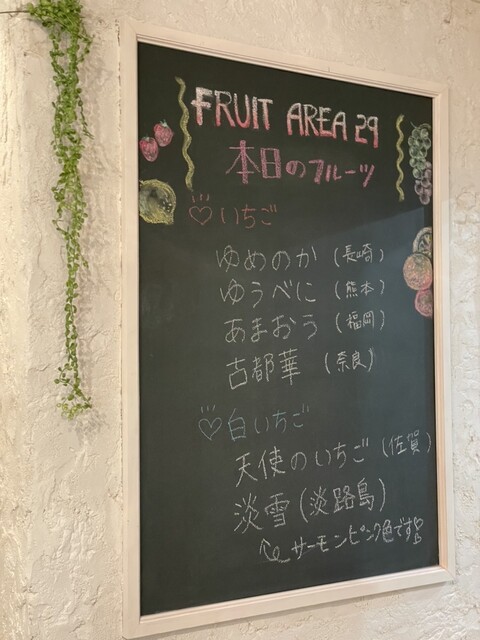 FRUIT AREA 29
本日のフルーツ
♡いちご
ゆめのか (長崎)
ゆうべに (熊本)
あまおう (福岡)
古都華 (奈良)
♡白いちご
天使のいちご (佐賀)
淡雪(淡路島)
サーモンピンク色です